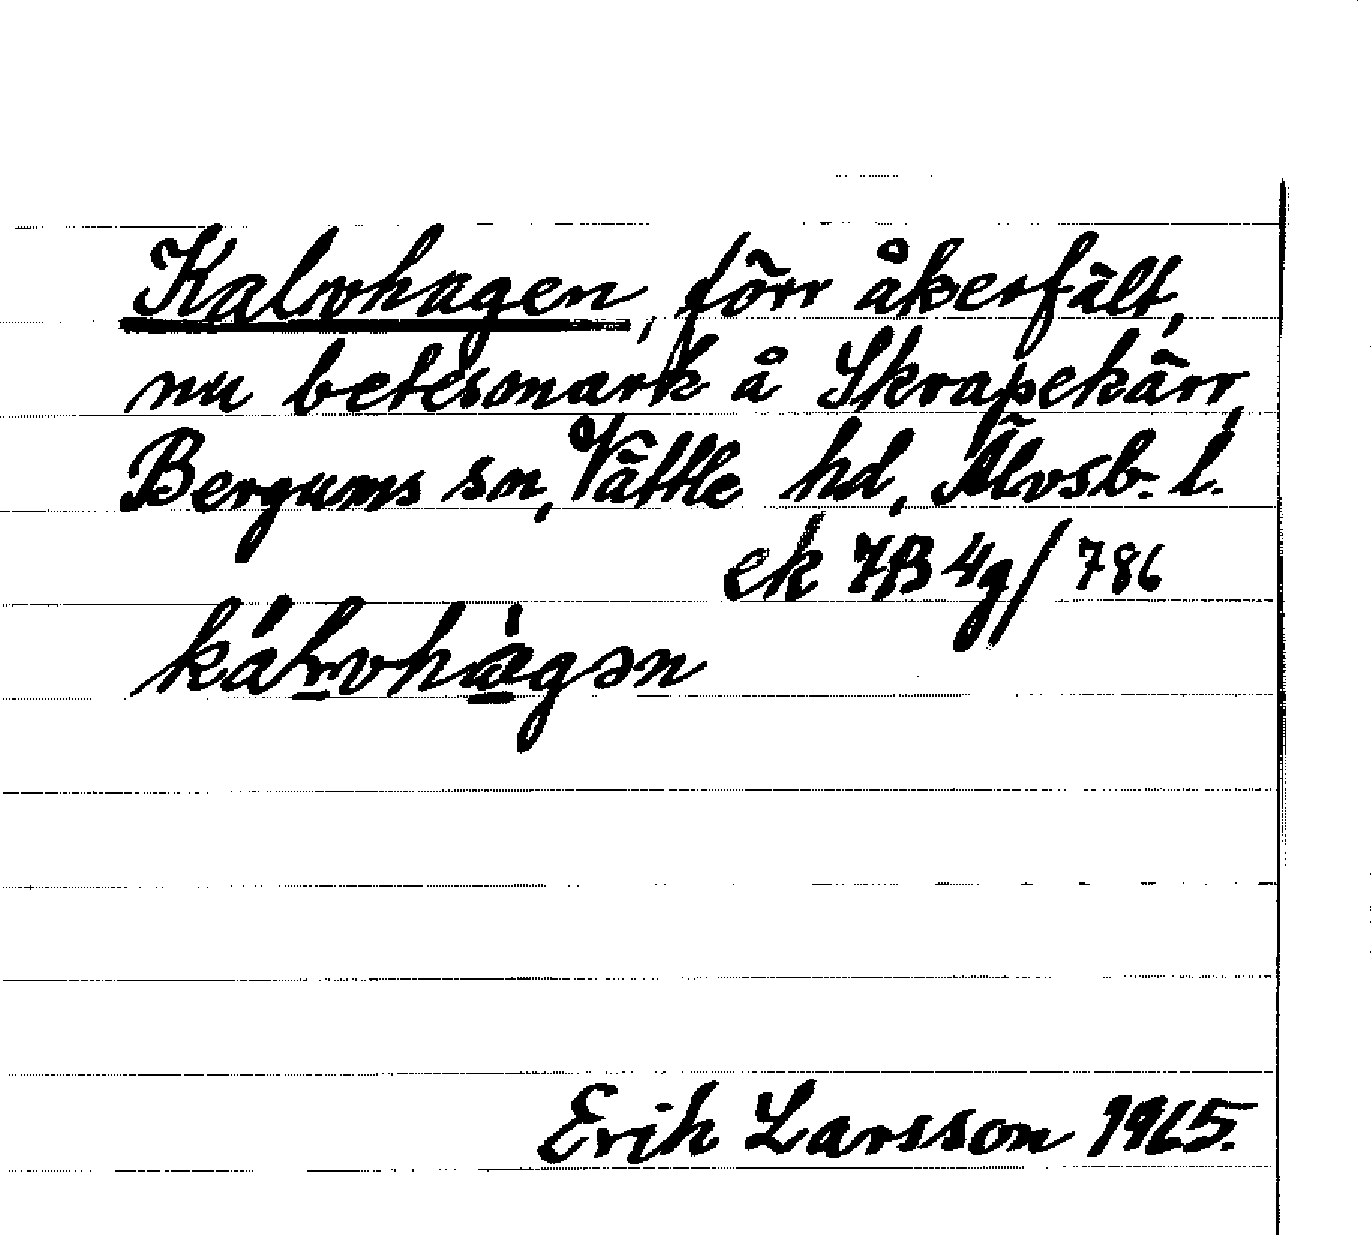 Kalvhagen, förr åkerfält,
nu betesmark å Skrapekärr,
Bergums sn, Vättle hd, Älvsb. l.
ek 7B 4g/786
Erik Larsson 1965.